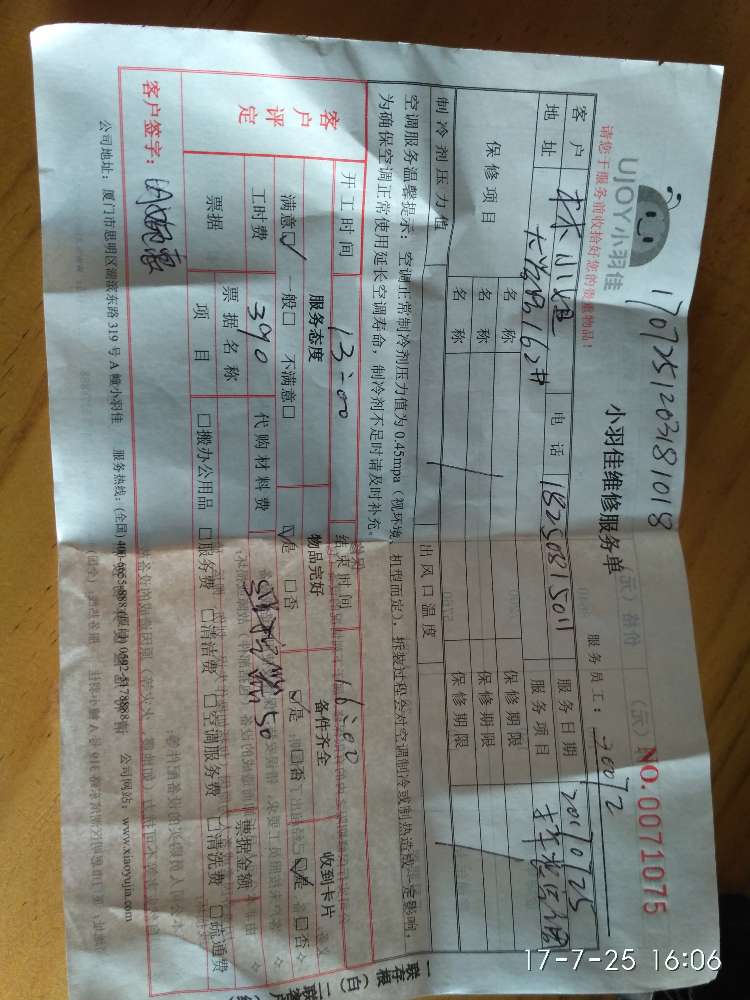 1707251203181018
UJOY小羽佳
请您于服务前收拾好您的贵重物品!
小羽佳维修服务单
NO.0071075
服务员工:
客户 林小姐 电话 18250815011 服务日期 20170725
地址 162# 服务项目
保修项目 名称 保修期限
名称 保修期限
名称 保修期限
制冷剂压力值 出风口温度
空调服务温馨提示:空调正常制冷剂压力值为0.45mpa(视环境、机型而定),拆装过程会对空调制冷或制热造成一定影响,
为确保空调正常使用延长空调寿命,制冷剂不足时请及时补充。
客户评定
开工时间 13:00 结束时间 16:00
服务态度 物品完好 备件齐全 收到卡片
满意☑ 一般□ 不满意□ ☑是 □否 ☑是 □否 ☑是 □否
工时费 390 代购材料费 50
票据 票据名称 票据金额
项目 □搬办公用品 □服务费 □清洁费 □空调服务费 □清洗费 □疏通费
客户签字:
公司地址:厦门市思明区湖滨东路319号A幢小羽佳 服务热线:(全国)400-6655-888 (厦门)0592-5178888 公司网站:www.xiaoyujia.com
17-7-25 16:06